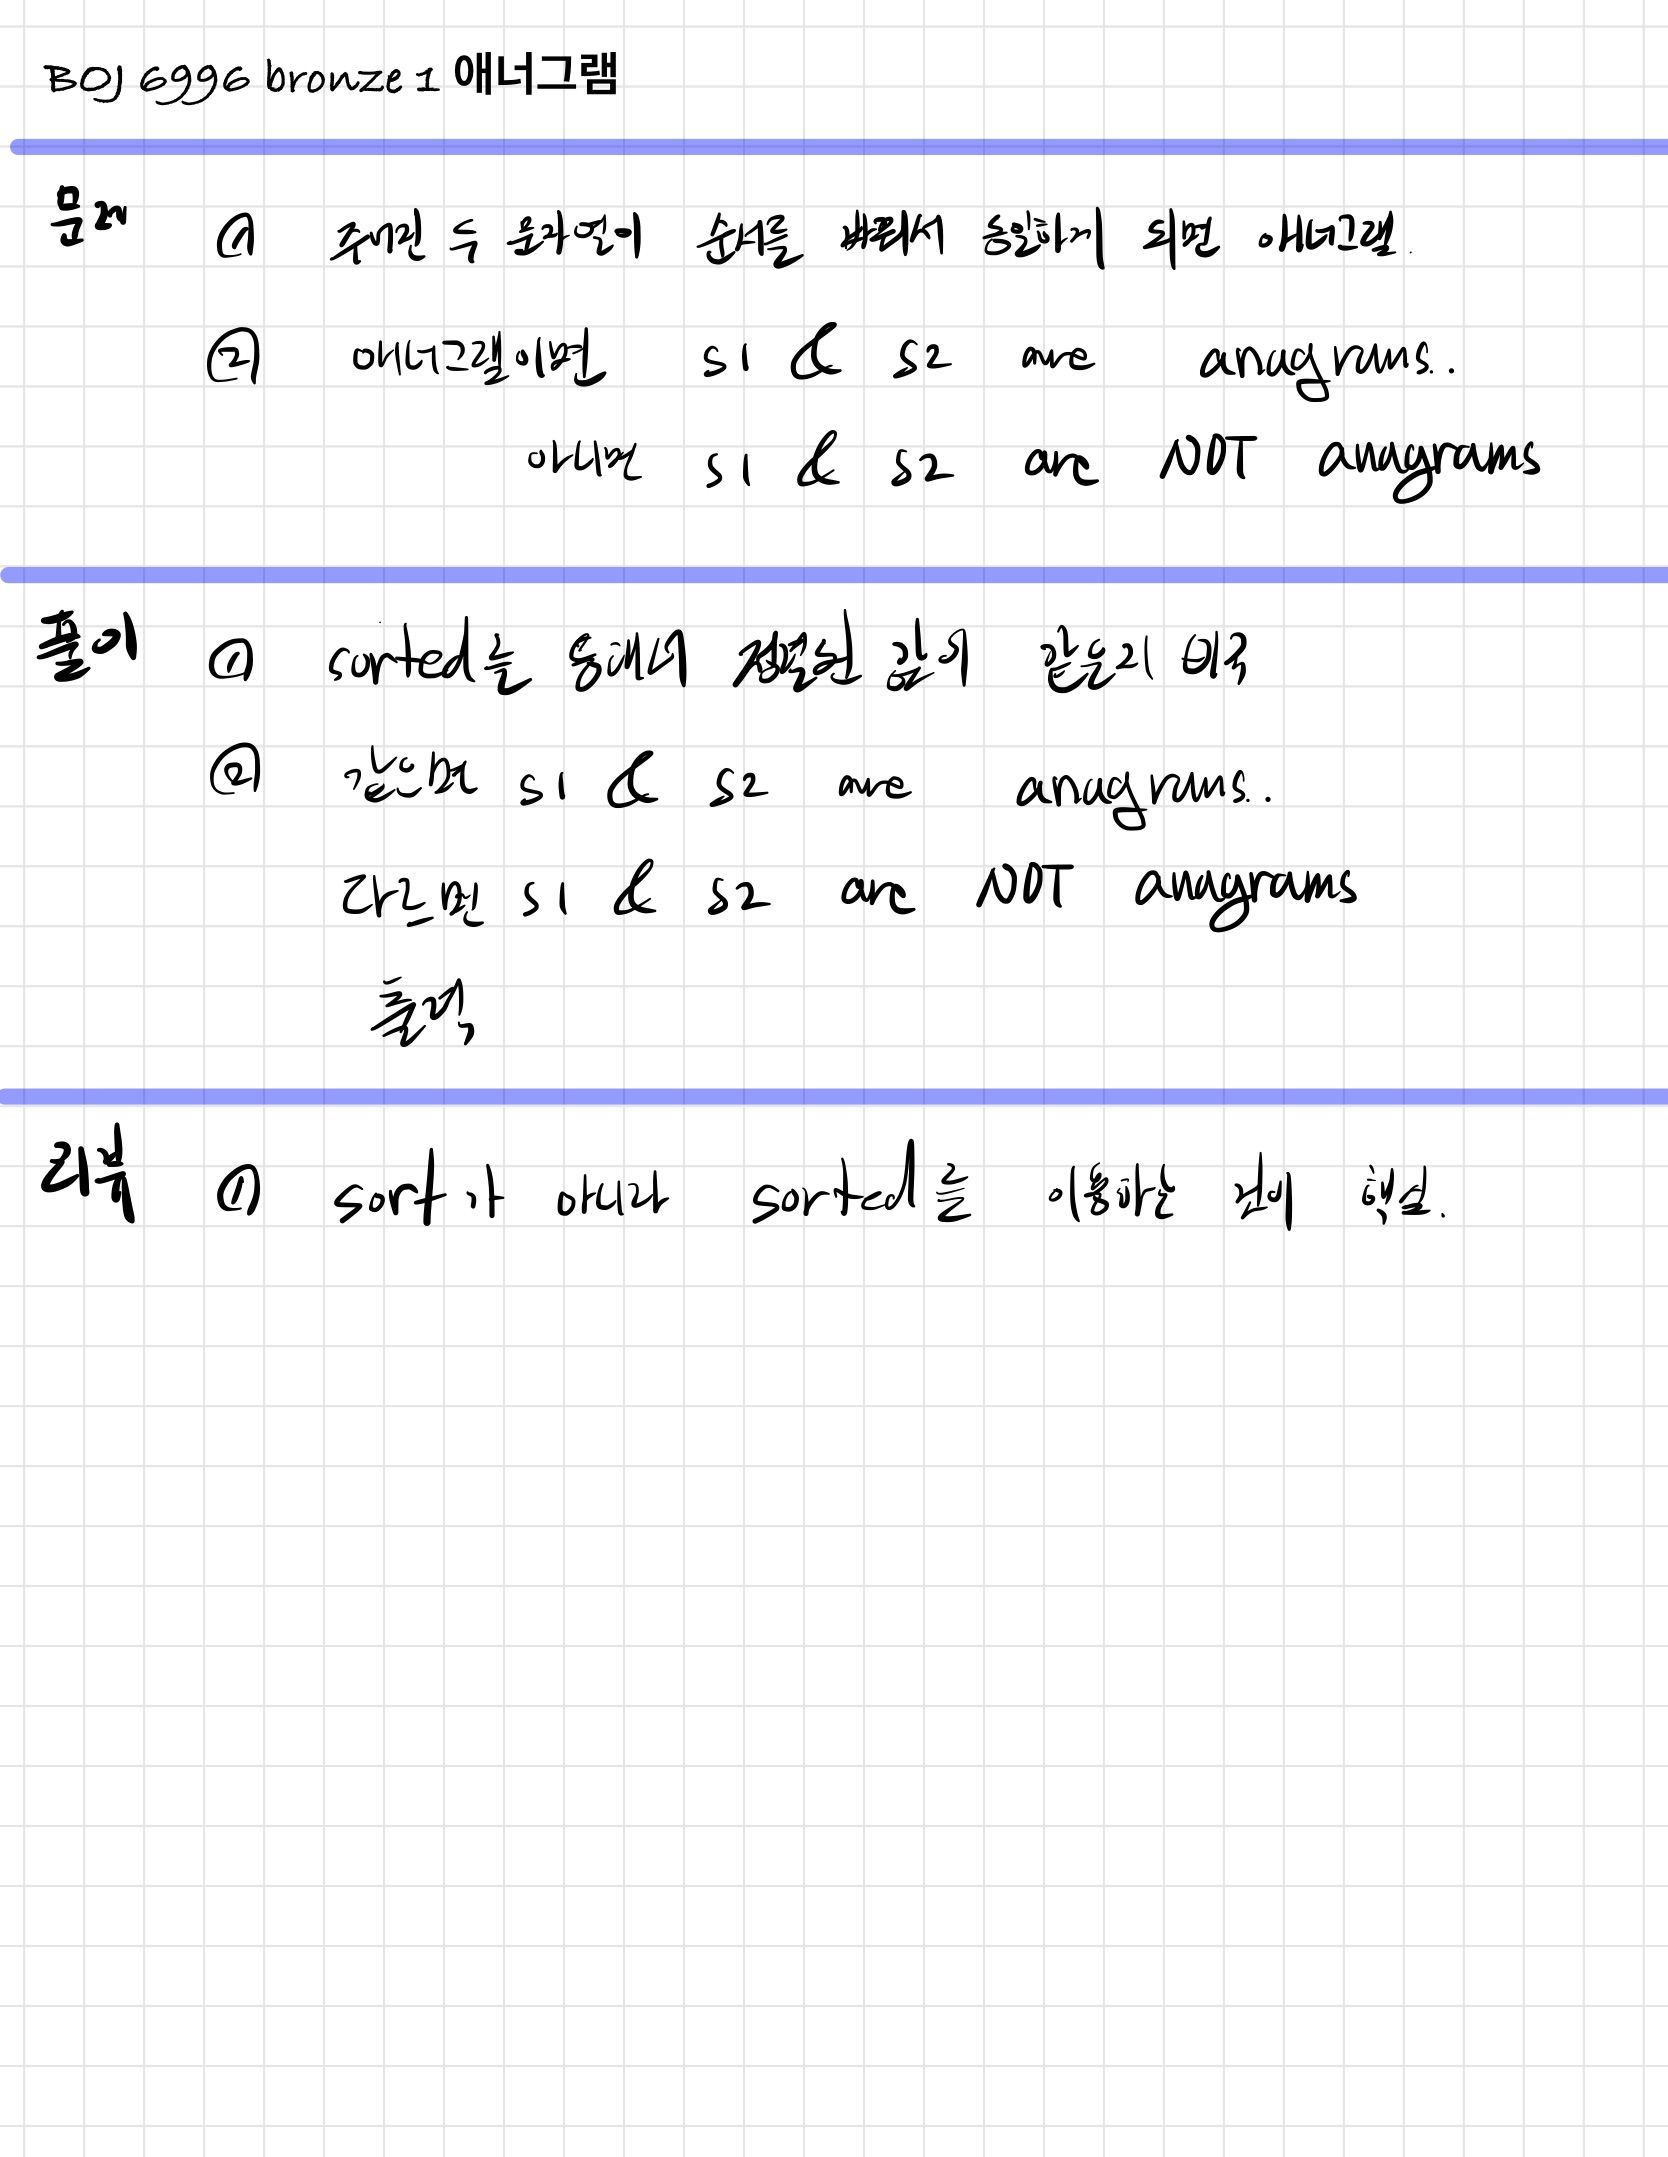 BOJ 6996 bronze 1 애너그램
문제 ① 주어진 두 문자열이 순서를 바꿔서 동일하게 되면 애너그램.
② 애너그램이면 s1 & s2 are anagrams..
아니면 s1 & s2 are NOT anagrams
풀이 ① sorted를 통해서 정렬한 값이 같은지 비교
② 같으면 s1 & s2 are anagrams..
다르면 s1 & s2 are NOT anagrams
출력
리뷰 ① sort가 아니라 sorted를 이용하는 것이 핵심.